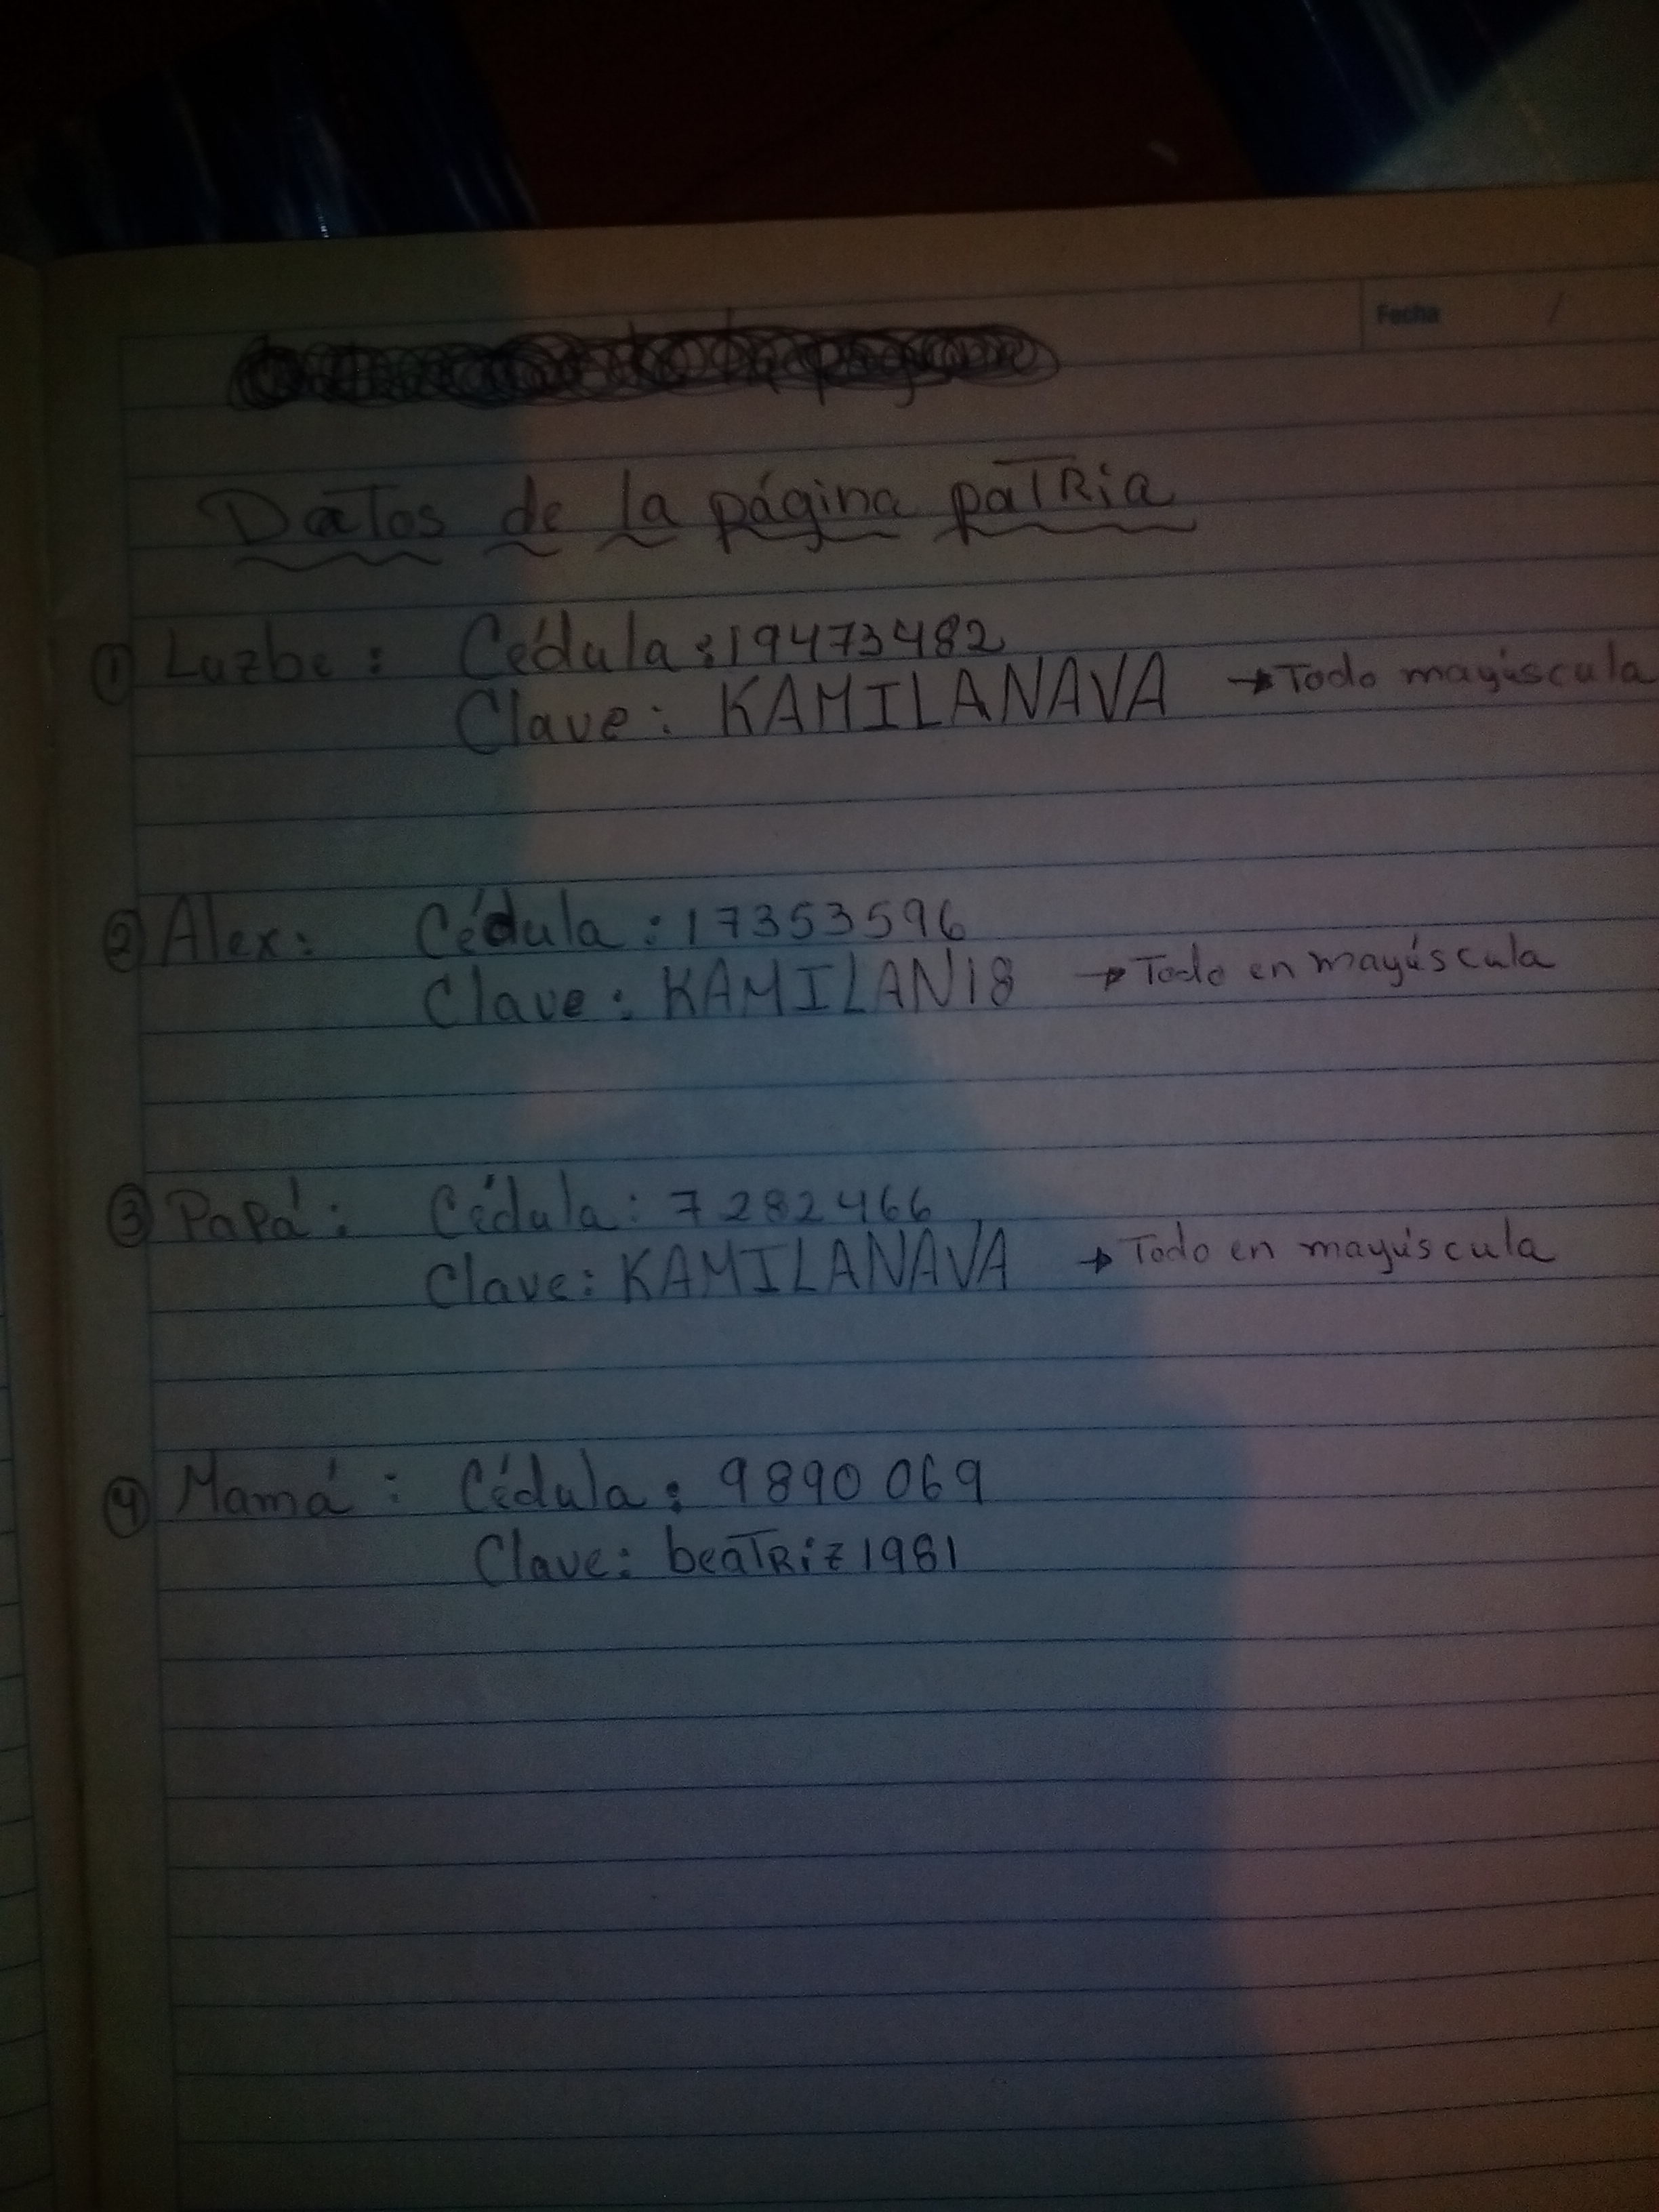 Fecha /
Datos de la página patria
① Luzbe: Cédula: 19473482
Clave: KAMILANAVA → Todo mayúscula
② Alex: Cédula: 17353596
Clave: KAMILAN18 → Todo en mayúscula
③ Papá: Cédula: 7282466
Clave: KAMILANAVA → Todo en mayúscula
④ Mamá: Cédula: 9890069
Clave: beatriz1981